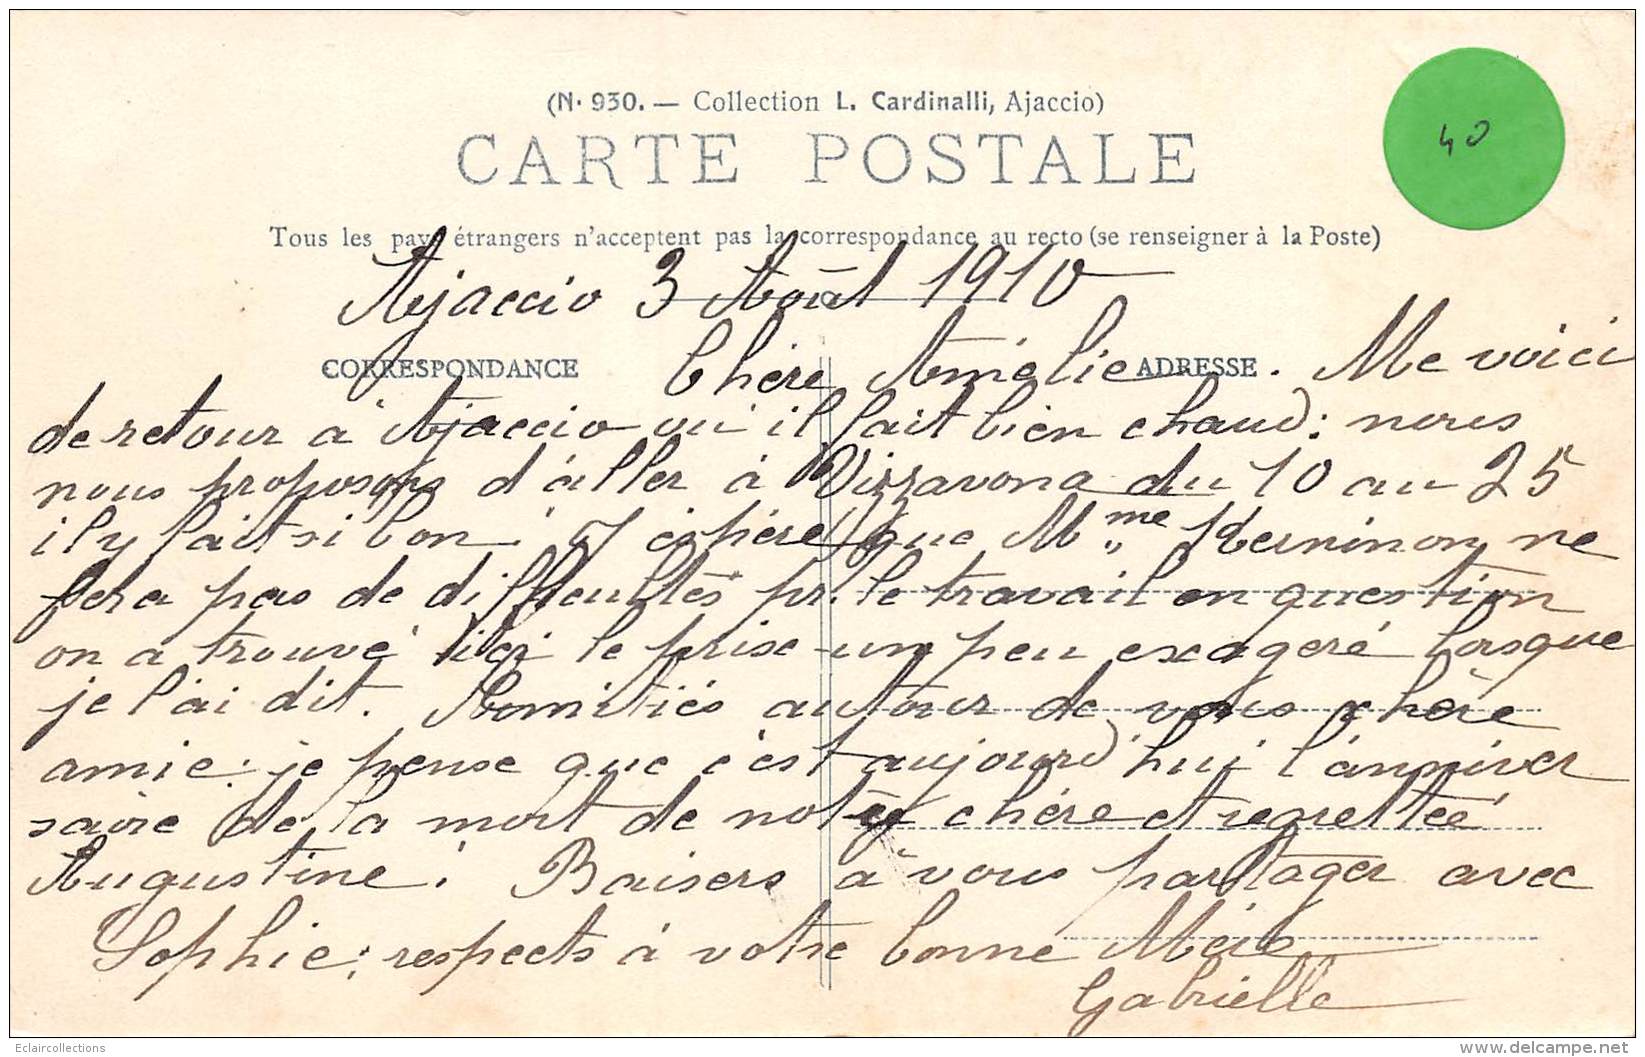 (N. 930. — Collection L. Cardinalli, Ajaccio)
40
CARTE POSTALE
Tous les pays étrangers n'acceptent pas la correspondance au recto (se renseigner à la Poste)
Ajaccio 3 Août 1910
CORRESPONDANCE
ADRESSE
Chère Amélie. Me voici
de retour à Ajaccio où il fait bien chaud: nous
nous proposons d'aller à Vizzavona du 10 au 25
il y fait si bon! J'éspère que Mme Kerninon ne
fera pas de difficultés pr. le travail en question
on a trouvé ici le prise un peu exagéré lorsque
je l'ai dit. Amitiés autour de vous chère
amie: je pense que c'est aujourd'hui l'anniver
saire de la mort de notre chère et regrettée
Augustine! Baisers à vous partager avec
Sophie; respects à votre bonne Mère
Gabrielle
Eclaircollections
www.delcampe.net